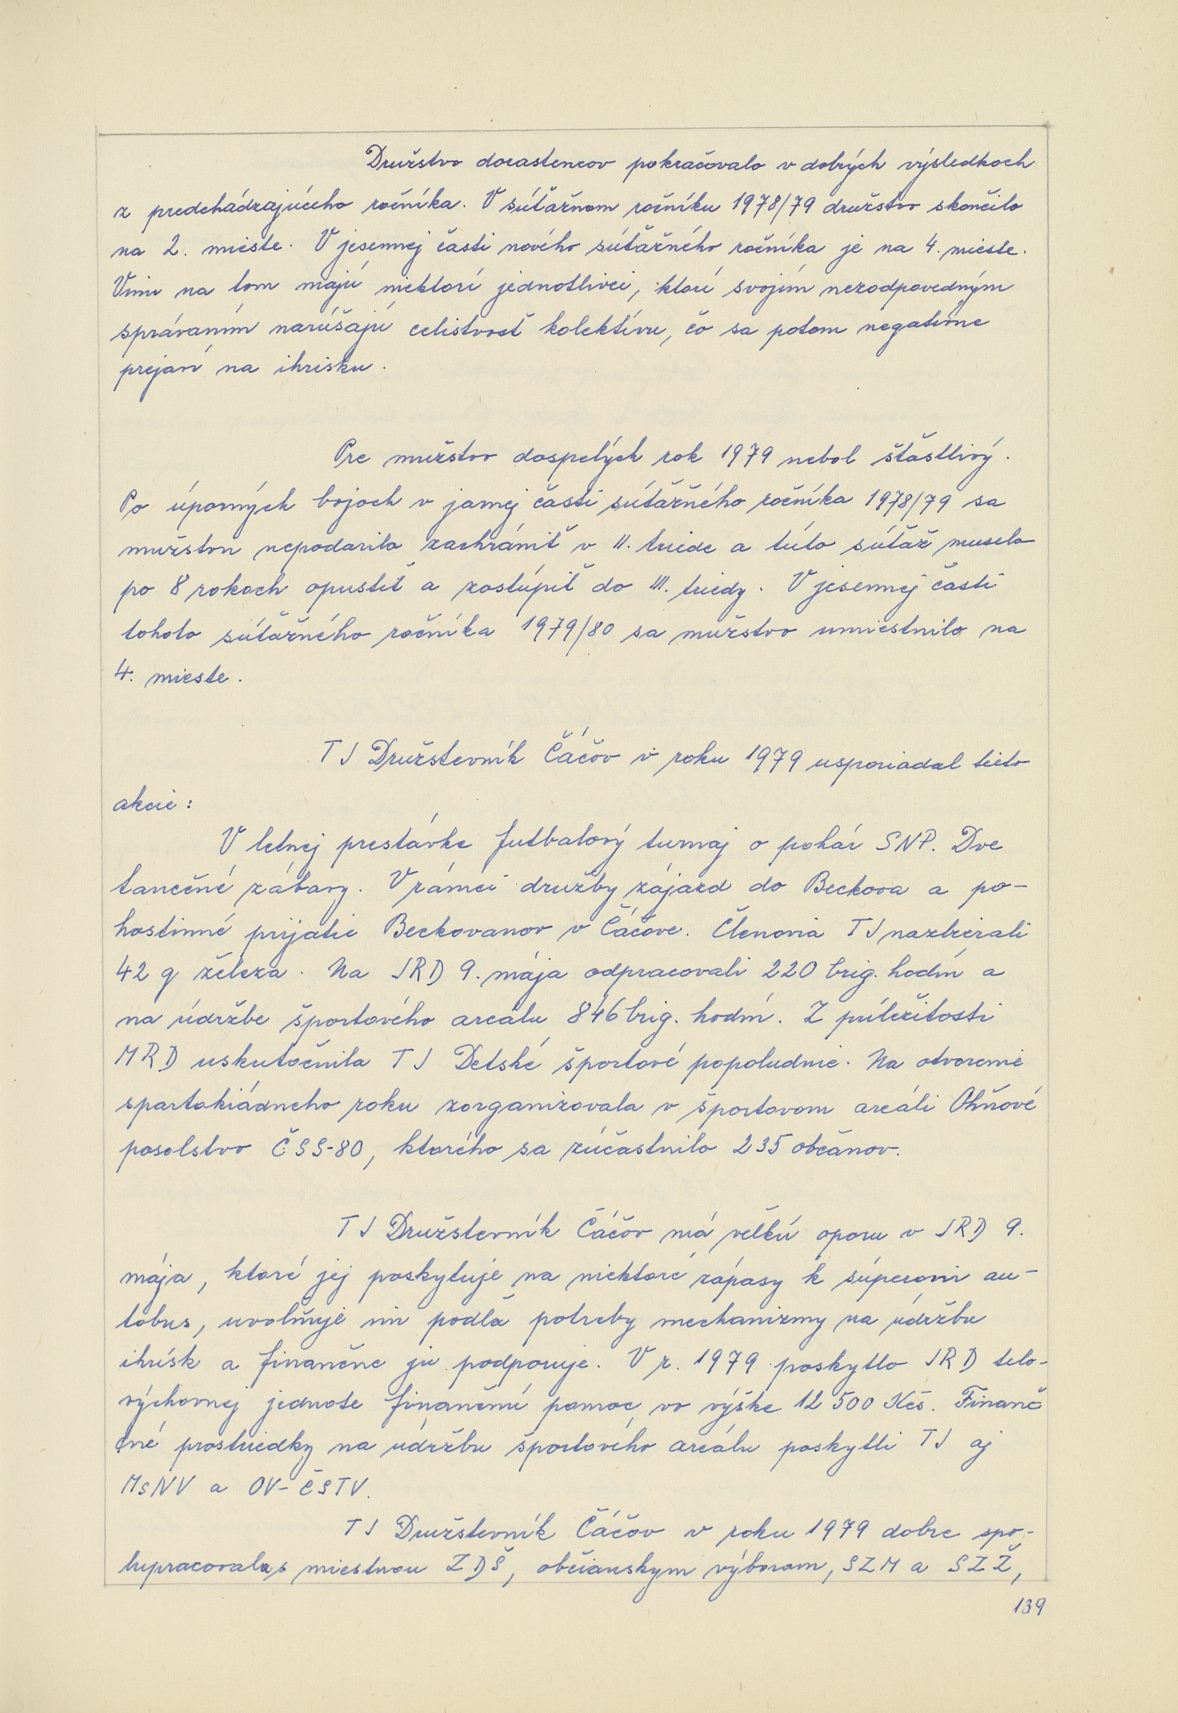 Družstvo dorastencov pokračovalo v dobrých výsledkoch
z predchádzajúceho ročníka. V súťažnom ročníku 1978/79 družstvo skončilo
na 2. mieste. V jesennej časti nového súťažného ročníka je na 4. mieste.
Vinu na tom majú niektorí jednotlivci, ktorí svojím nezodpovedným
správaním narúšajú celistvosť kolektívu, čo sa potom negatívne
prejaví na ihrisku.
Pre mužstvo dospelých rok 1979 nebol šťastlivý.
Po úporných bojoch v jarnej časti súťažného ročníka 1978/79 sa
mužstvu nepodarilo zachrániť v II. triede a túto súťaž muselo
po 8 rokoch opustiť a zostúpiť do III. triedy. V jesennej časti
tohoto súťažného ročníka 1979/80 sa mužstvo umiestnilo na
4. mieste.
TJ Družstevník Čáčov v roku 1979 usporiadal tieto
akcie:
V letnej prestávke futbalový turnaj o pohár SNP. Dve
tanečné zábavy. V rámci družby zájazd do Beckova a po-
hostinné prijatie Beckovanov v Čáčove. Členovia TJ nazbierali
42 q železa. Na JRD 9. mája odpracovali 220 brig. hodín a
na údržbe športového areálu 846 brig. hodín. Z príležitosti
MRD uskutočnila TJ Detské športové popoludnie. Na otvorenie
spartakiádneho roku zorganizovala v športovom areáli Ohňové
posolstvo ČSS-80, ktorého sa zúčastnilo 235 občanov.
TJ Družstevník Čáčov má veľkú oporu v JRD 9.
mája, ktoré jej poskytuje na niektoré zápasy k súperovi au-
tobus, uvoľňuje im podľa potreby mechanizmy na údržbu
ihrísk a finančne ju podporuje. V r. 1979 poskytlo JRD telo-
výchovnej jednote finančnú pomoc vo výške 12 500 Kčs. Finanč
né prostriedky na údržbu športového areálu poskytli TJ aj
MsNV a OV-ČSTV.
TJ Družstevník Čáčov v roku 1979 dobre spo-
lupracovala s miestnou ZDŠ, občianskym výborom, SZM a SZŽ,
139